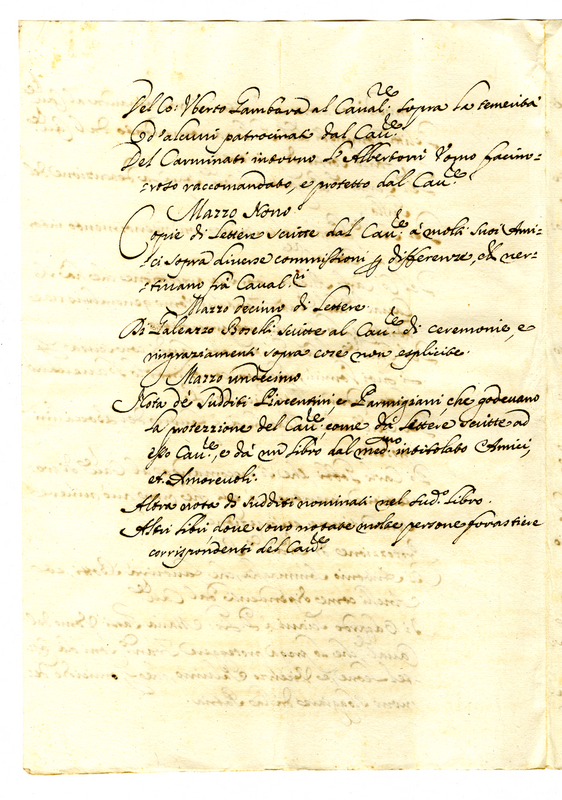 Del Co: Vberto Gambara al Caual:re sopra la temerità
d'alcuni patrocinati dal Cau:re
Del Carminati intorno l'Albertoni Vomo facino-
-roso raccomandato, e protetto dal Cau:re
Mazzo Nono
Copie di Lettere scritte dal Cau:re à molti suoi Ami-
-ci sopra diuerse commissioni p differenze, ch' ver-
-tiuano frà Caual:ri
Mazzo decimo di Lettere
Di Galeazzo Boselli scritte al Cau:re di ceremonie, e
ringraziamenti sopra cose non esplicite.
Mazzo undecimo
Nota de Sudditi Piacentini, e Parmigiani, che godeuano
la protezzione del Cau:re, come dà Lettere scritte ad
esso Cau:re, e dà un Libro dal med:mo intitolato Amici,
et Amoreuoli.
Altra nota di Sudditi nominati nel Sud:o Libro.
Altri Libri doue sono notate molte persone forastiere
corrispondenti del Cau:re